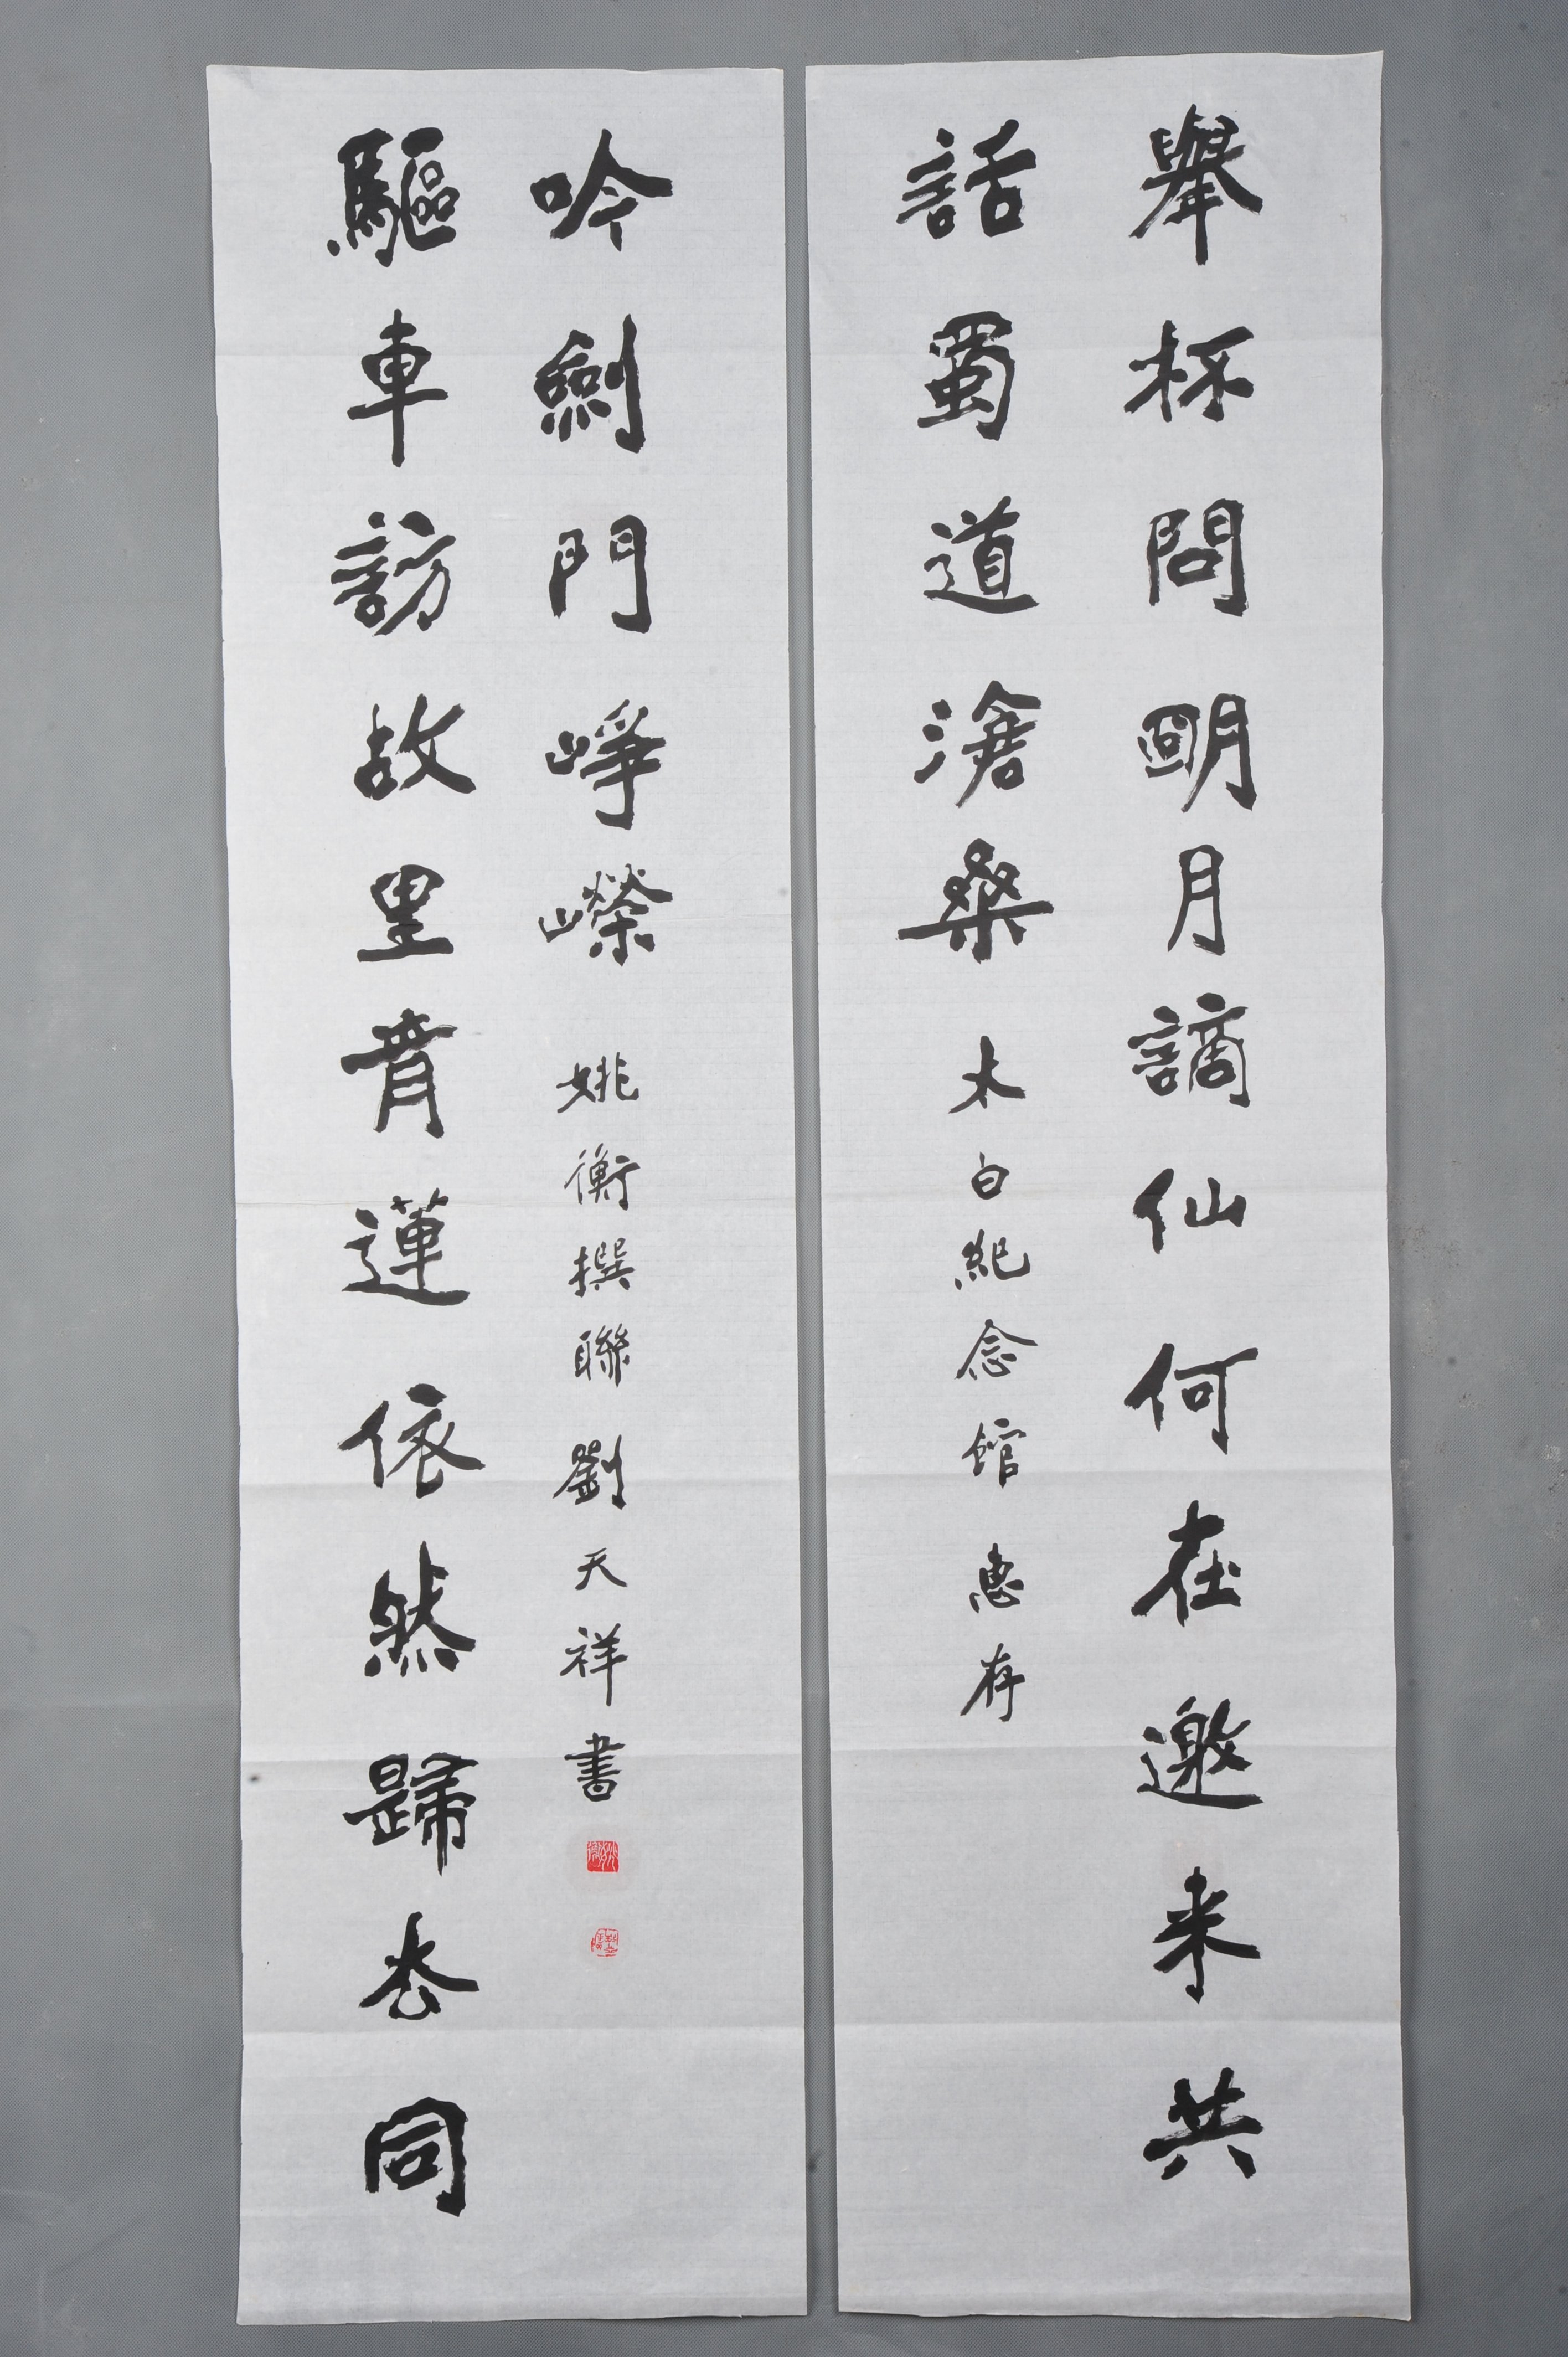 舉杯問明月謫仙何在邀来共
話蜀道滄桑 太白紀念館 惠存
驅車訪故里青蓮依然歸去同
吟劍門崢嶸 姚衡撰聯 劉天祥書